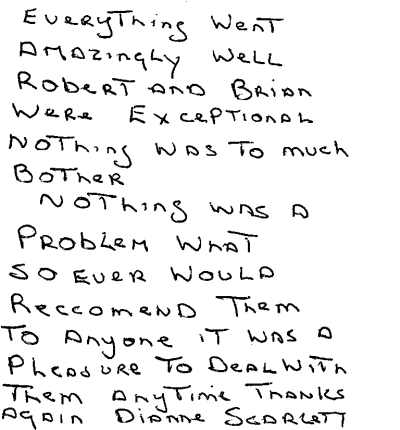 Everything Went
Amazingly Well
Robert and Brian
Were Exceptional
Nothing was to much
Bother
Nothing was a
Problem What
so ever would
Reccomend Them
To Anyone it was a
Pleasure To Deal With
Them Anytime Thanks
Again Dianne Scarlett